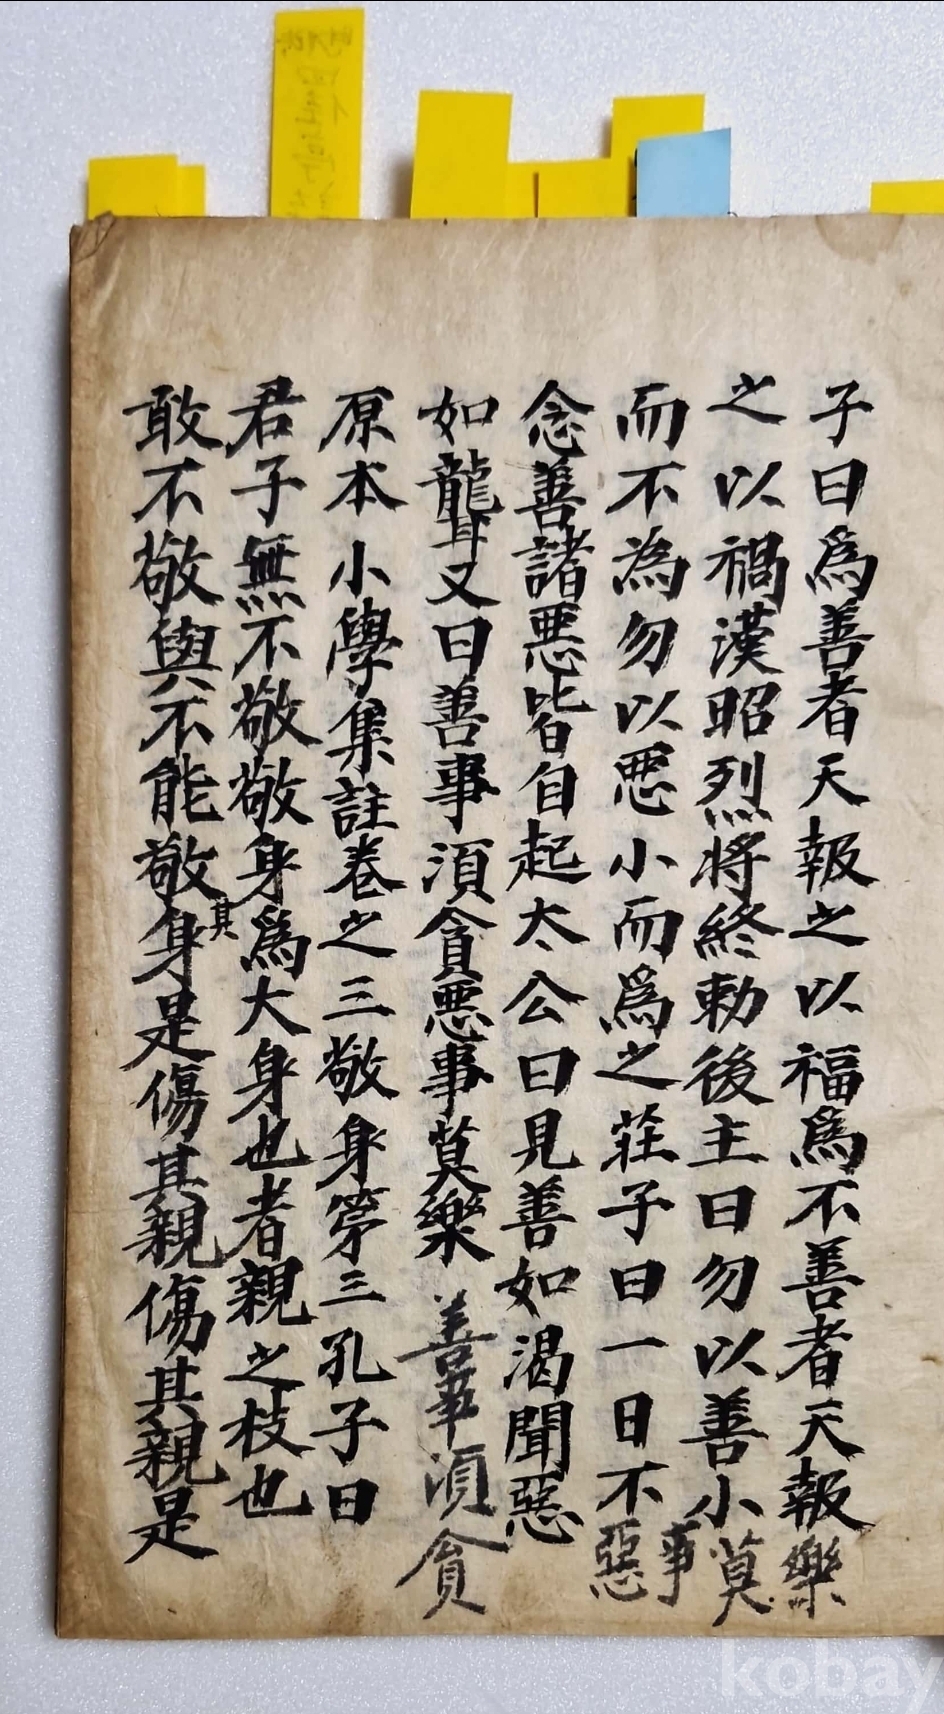 子曰爲善者天報之以福爲不善者天報
之以禍漢昭烈将終勅後主曰勿以善小
而不為勿以悪小而爲之荘子曰一日不
念善諸悪皆自起太公曰見善如渴聞惡
如聾又曰善事湏貪悪事莫樂
善事湏貪
惡事莫樂
原本小學集註卷之三敬身第三孔子曰
君子無不敬敬身爲大身也者親之枝也
敢不敬與不能敬其身是傷其親傷其親是
kobay